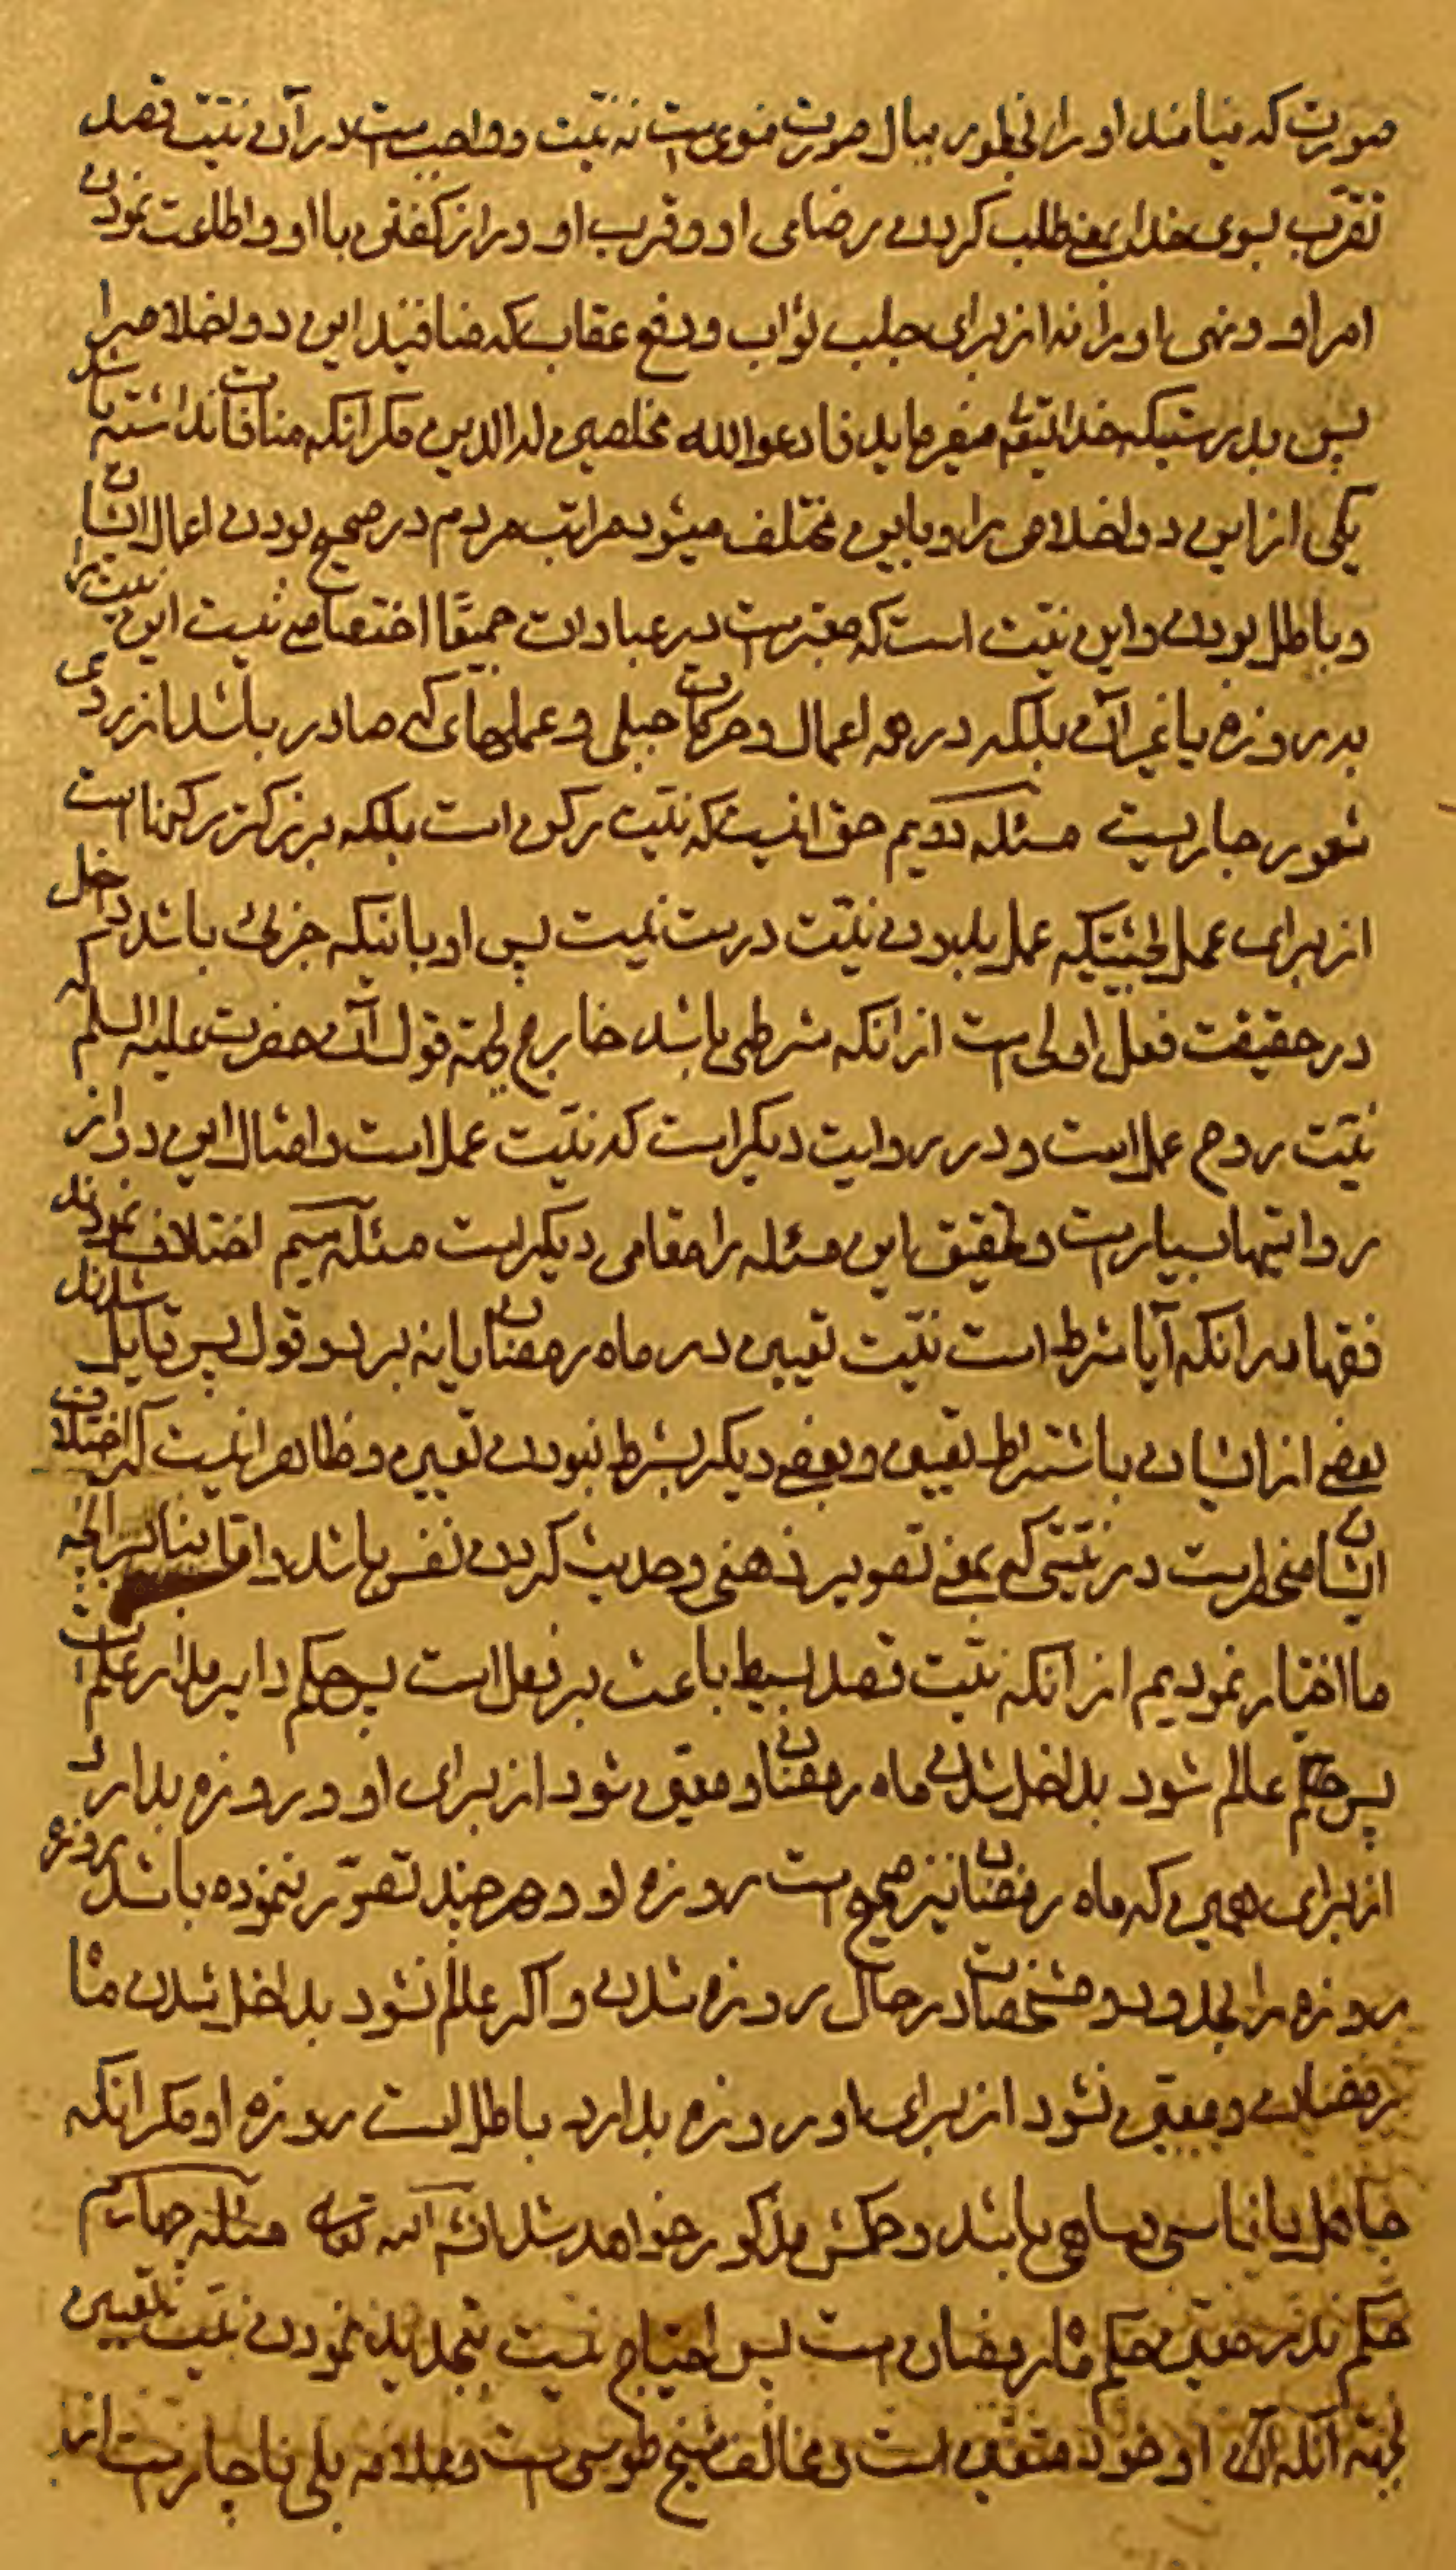 صورت که میامند او را بخطور ببال صورت منوی ست نه نیت و واجب ست در آن نیت قصد
تقرّب بسوی خدا یعنی طلب کردن رضای او و قرب او و راز گفتن با او و اطاعت نمودن
امر او و نهی او را نه از برای جلب ثواب و دفع عقاب که منافیند این دو اخلاص را
پس بدرستیکه خدایتعالی میفرماید فادعوا الله مخلصین له الدین مگر آنکه منافات نداشته باشد
یکی از این دو اخلاص را و باین مختلف میشود مراتب مردم در صحیح بودن اعمال ایشان
و باطل بودن و این نیت است که معتبرست در عبادات جمیعًا اختصاصی نیست این نیت را
به روزه یا غیر آن بلکه در همه اعمال و حرکات جبلی و عملهای که صادر باشد از روی
شعور جاریست مسئله دویم حق اینست که نیت رکن است بلکه بزرگتر رکنها است
از برای عمل بحیثیتیکه عمل بدون نیت درست نیست پس او باینکه جزئی باشد داخل
در حقیقت فعل اولی ست از آنکه شرطی باشد خارج بجهة قول آنحضرت علیه السلم که
نیّت روح عمل است و در روایت دیگر است که نیّت عمل است و امثال این دو از
روایتها بسیارست و تحقیق این مسئله را مقامی دیگر است مسئله سیم اختلاف نمودند
فقها در آنکه آیا شرط است نیّت تعیین در ماه رمضان یا نه بر دو قول پس قایل شدند
بعضی از ایشان باشتراط تعیین و بعضی دیگر بشرط نبودن تعیین و ظاهر اینست که اختلاف
ایشان منحصرست در نیتی که بمعنی تصویر ذهنی و حدیث کردن نفس باشد و اما بنا بر آنچه
ما اختیار نمودیم از آنکه نیّت قصد بسیط باعث بر فعل است پس حکم دایر مدار علم است
پس هرگاه عالم شود بداخل شدن ماه رمضان و معین شود از برای او و روزه بدارد
از برای همین که ماه رمضان نیز صحیح ست روزه او و هر چند تصوّر ننموده باشد روزه
روزه را بحدود و مشخصات در حال روزه شدن و اگر عالم نشود بداخل شدن ماه
رمضان و معین نشود از برای او روزه بدارد باطل است روزه او مگر آنکه
جاهل یا ناسی و ساهی باشد و حکمش مذکور خواهد شد انشاء الله تعالی مسئله چهارم
حکم نذر معیّن حکم ماه رمضان ست پس احتیاج نیست بتجدید نمودن نیّت تعیین
بجهة آنکه آن او خود متعین است و مخالف شیخ طوسی ست و علامه بلی ناچارست از